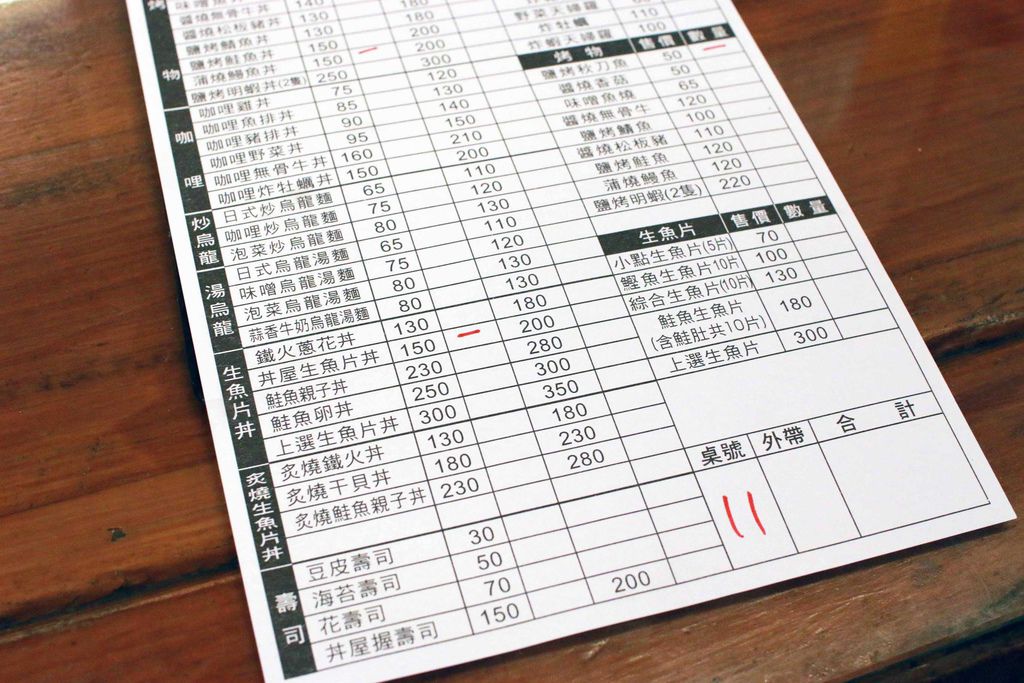 烤物
醬燒松板豬丼 140 180
鹽烤鯖魚丼 130 180
鹽烤鮭魚丼 150 200
蒲燒鰻魚丼 150 200
鹽烤明蝦丼(2隻) 250 300
咖哩
咖哩雞丼 75 120
咖哩魚排丼 85 130
咖哩豬排丼 90 140
咖哩野菜丼 95 150
咖哩無骨牛丼 160 210
咖哩炸牡蠣丼 150 200
炒烏龍
日式炒烏龍麵 65 110
咖哩炒烏龍麵 75 120
泡菜炒烏龍麵 80 130
湯烏龍
日式烏龍湯麵 65 110
味噌烏龍湯麵 75 120
泡菜烏龍湯麵 80 130
蒜香牛奶烏龍湯麵 80 130
生魚片丼
鐵火蔥花丼 130 180
丼屋生魚片丼 150 200
鮭魚親子丼 230 280
鮭魚卵丼 250 300
上選生魚片丼 300 350
炙燒生魚片丼
炙燒鐵火丼 130 180
炙燒干貝丼 180 230
炙燒鮭魚親子丼 230 280
壽司
豆皮壽司 30
海苔壽司 50
花壽司 70
丼屋握壽司 150 200
野菜天婦羅
炸牡蠣 110
炸蝦天婦羅 100
烤物 售價 數量
鹽烤秋刀魚 50
醬燒香菇 50
味噌魚燒 65
醬燒無骨牛 120
鹽烤鯖魚 100
醬燒松板豬 110
鹽烤鮭魚 120
蒲燒鰻魚 120
鹽烤明蝦(2隻) 220
生魚片 售價 數量
小點生魚片(5片) 70
鰹魚生魚片10片 100
綜合生魚片(10片) 130
鮭魚生魚片
(含鮭肚共10片) 180
上選生魚片 300
桌號 外帶 合計
11